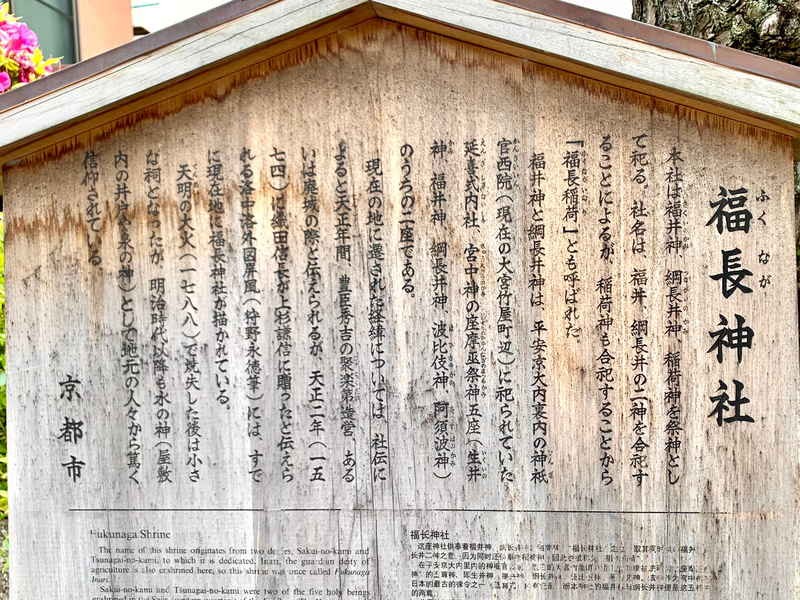 福長神社
ふくなが
本社は福井神、綱長井神、稲荷神を祭神とし
て祀る。社名は、福井、綱長井の二神を合祀す
ることによるが、稲荷神も合祀することから
「福長稲荷」とも呼ばれた。
福井神と綱長井神は、平安京大内裏内の神祇
官西院（現在の大宮竹屋町辺）に祀られていた
延喜式内社、宮中神の座摩巫祭神五座（生井
神、福井神、綱長井神、波比伎神、阿須波神）
のうちの一座である。
現在の地に遷された経緯については、社伝に
よると天正年間、豊臣秀吉の聚楽第造営、ある
いは廃城の際と伝えられるが、天正二年（一五
七四）に織田信長が上杉謙信に贈ったと伝えら
れる洛中洛外図屏風（狩野永徳筆）には、すで
に現在地に福長神社が描かれている。
天明の大火（一七八八）で焼失した後は小さ
な祠となったが、明治時代以降も水の神（屋敷
内の井戸や泉の神）として地元の人々から篤く
信仰されている。
京都市
Fukunaga Shrine
The name of this shrine originates from two deities, Sakui-no-kami and
Tsunagai-no-kami, to which it is dedicated. Inari, the guardian deity of
agriculture is also enshrined here, so this shrine was once called Fukunaga
Inari.
Sakui-no-kami and Tsunagai-no-kami were two of the five holy beings
福长神社
这座神社供奉着福井神、